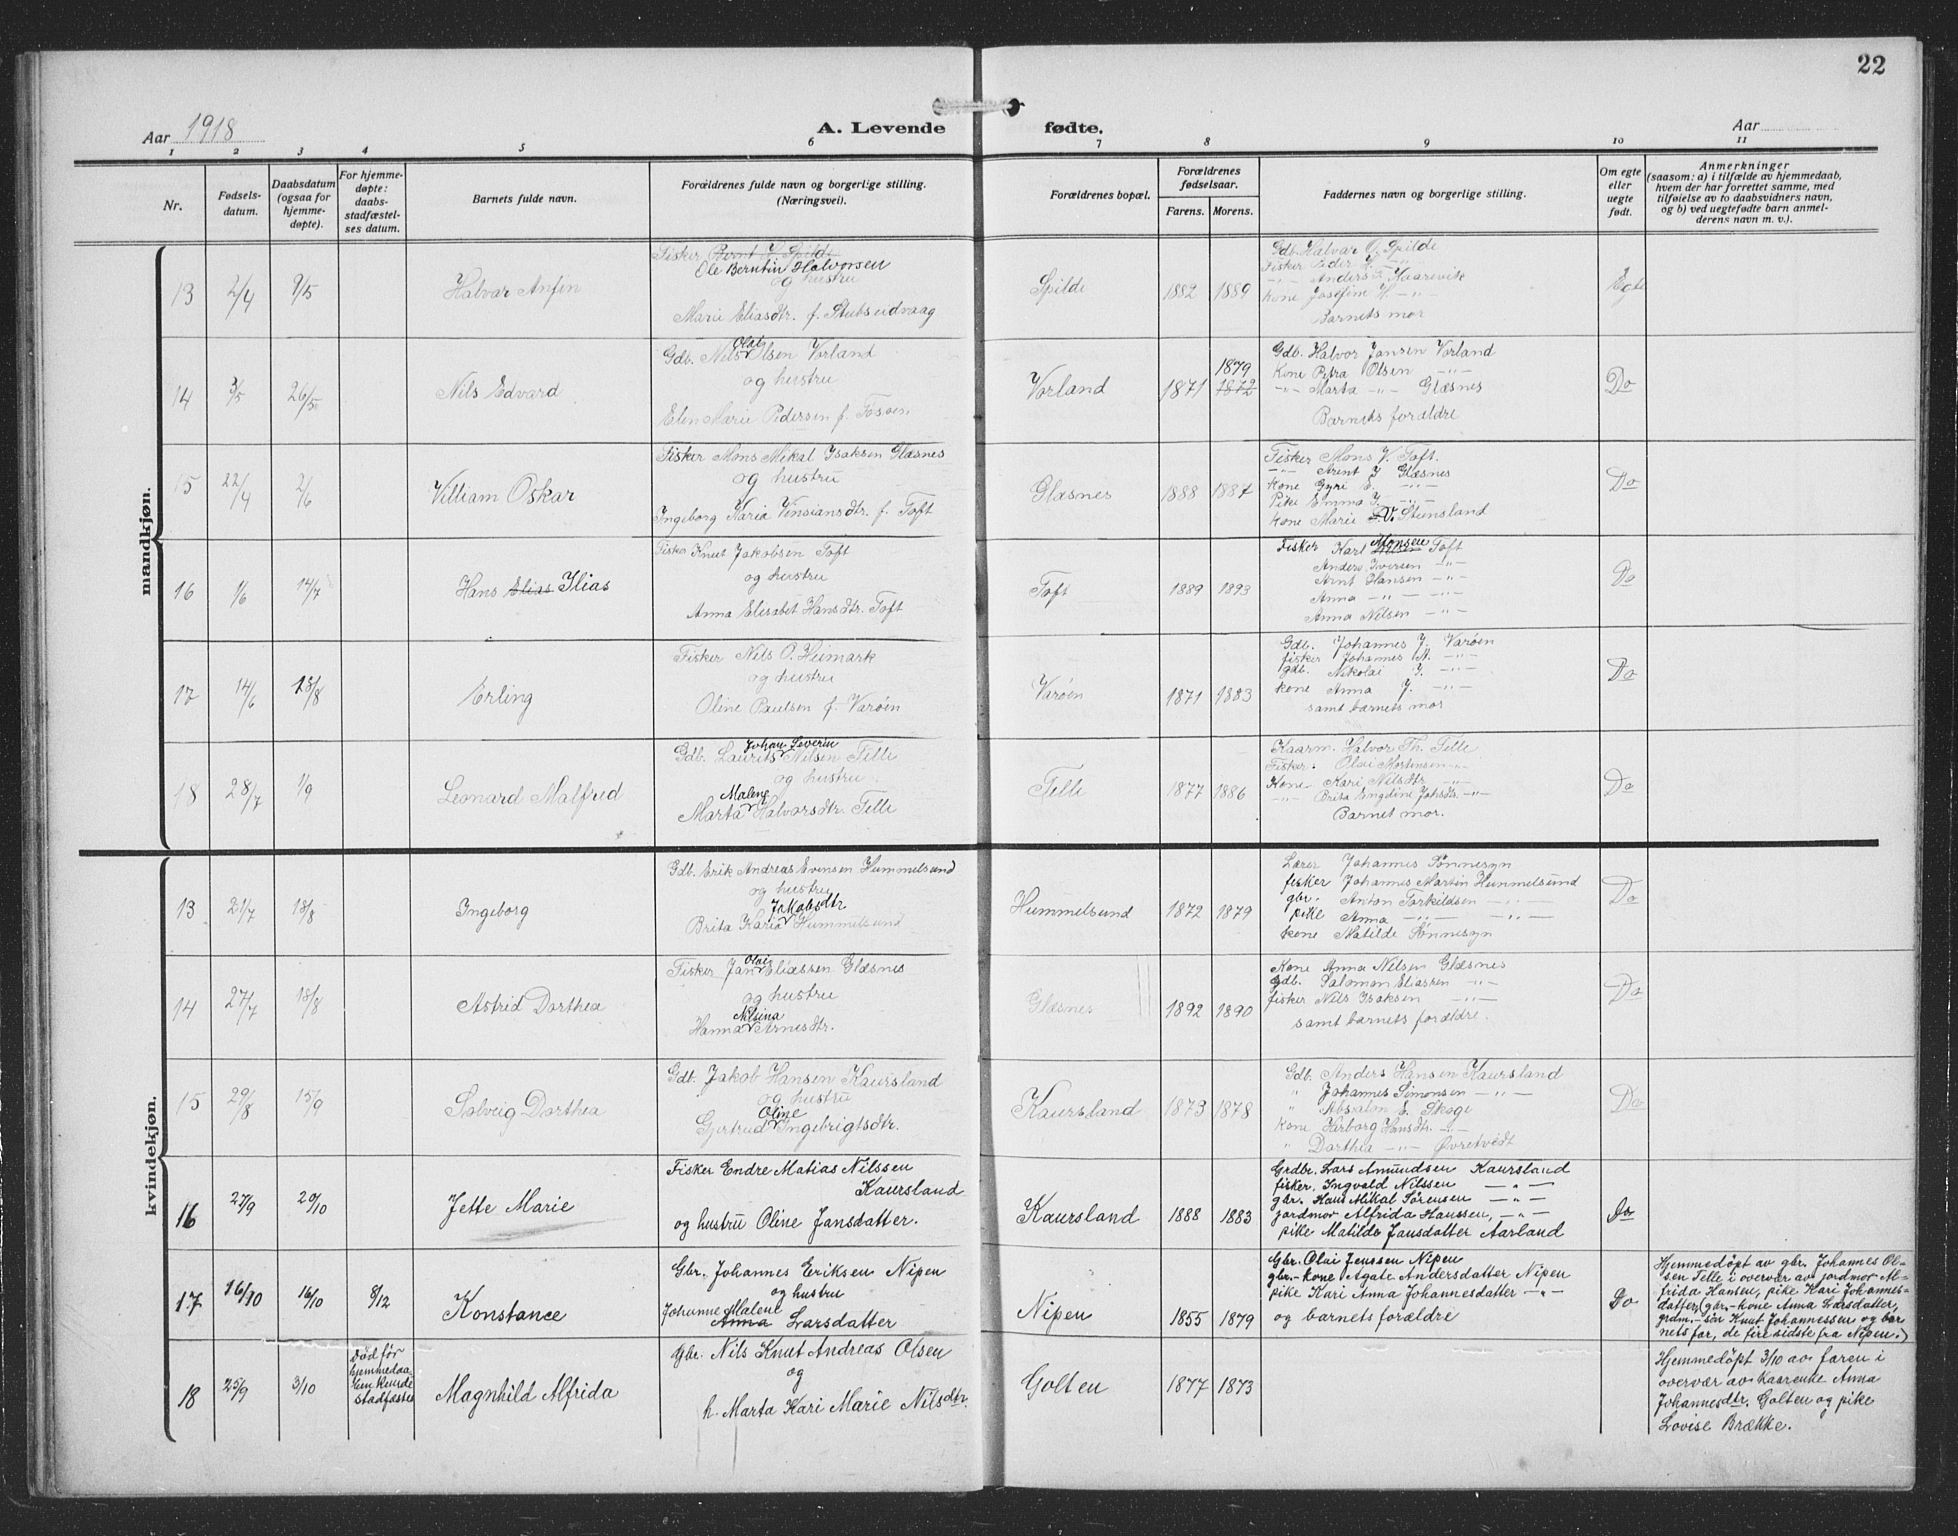 22
Aar 1918
A. Levende fødte.
Aar
1 2 3 4 5 6 7 8 9 10 11
Nr.
Fødsels-
datum.
Daabsdatum
(ogsaa for
hjemme-
døpte).
For hjemme-
døpte:
daabs-
stadfæstel-
ses datum.
Barnets fulde navn.
Forældrenes fulde navn og borgerlige stilling.
(Næringsvei).
Forældrenes bopæl.
Forældrenes
fødselsaar.
Farens. Morens.
Faddernes navn og borgerlige stilling.
Om egte
eller
uegte
født.
Anmerkninger
(saasom: a) i tilfælde av hjemmedaab,
hvem der har forrettet samme, med
tilføielse av to daabsvidners navn,
og b) ved uegtefødte barn anmel-
derens navn m. v.).
mandkjøn.
13 2/4 9/5 Halvar Anfin
Fisker Bernt H. Spilde
Ole Berntin Halvorsen
og hustru
Marie Eliasdtr. f. Stubsudvaag
Spilde 1882 1889
Gdb. Halvar O. Spilde
Fisker Peder H. -"-
-"- Anders J. Kaarevik
Kone Josefine H. -"-
Barnets mor
Egte
14 3/5 26/5 Nils Edvard
Olai
Gdb. Nils Olsen Vorland
og hustru
Elen Marie Pedersen f. Tosøen
Vorland 1871 1879
1872
Gdb. Halvor Jansen Vorland
Kone Petra Olsen -"-
-"- Marta -"- Glæsnes
Barnets forældre
Do
15 22/4 2/6 Villiam Oskar
Fisker Mons Mikal Isaksen Glæsnes
og hustru
Ingeborg Karia Vinsiansdtr. f. Toft
Glæsnes 1888 1887
Fisker Mons V. Toft.
-"- Arent J Glæsnes
Kone Gyri E. -"-
Pike Emma J. -"-
Kone Marie V. Stensland
Do
16 1/6 14/7 Hans Elias Ilias
Fisker Knut Jakobsen Toft
og hustru
Anna Elisabet Hansdtr. Toft
Toft 1889 1893
Monsen
Fisker Karl Toft
Anders Iversen -"-
Arnt Hansen -"-
Anna -"- -"-
Anna Nilsen -"-
Do
17 14/6 18/8 Erling
Fisker Nils O. Heimark
og hustru
Oline Paulsen f. Varøen
Varøen 1871 1883
Gdb. Johannes J. Varøen
fisker Johannes A. -"-
gdb. Nikolai J. -"-
Kone Anna J. -"-
samt barnets mor
Do
18 28/7 1/9 Leonard Malfred
Johan Severin
Gdb. Laurits Nilsen Telle
og hustru
Malene
Marta Halvorsdtr. Telle
Telle 1877 1886
Kaarm. Halvor Th. Telle
Fisker. Olai Mortensen -"-
Kone Kari Nilsdtr -"-
-"- Brita Engeline Johsdtr. -"-
Barnet mor.
Do
kvindekjøn.
13 21/7 18/8 Ingeborg
Gdb. Erik Andreas Evensen Hummelsund
og hustru
Jakobsdtr
Brita Karia Hummelsund
Hummelsund 1872 1879
Lærer Johannes Sønnesyn
fisker Johannes Martin Hummelsund
gbr. Anton Torkildsen -"-
pike Anna -"- -"-
kone Matilde Sønnesyn
Do
14 27/7 18/8 Astrid Dorthea
Olai
Fisker Jan Eliassen Glæsnes
og hustru
Nilsina
Hanna Arnesdtr.
Glæsnes 1892 1890
Kone Anna Nilsen Glæsnes
gdb. Salomon Eliassen -"-
fisker Nils Isaksen -"-
samt barnets forældre.
Do
15 29/8 15/9 Solveig Dorthea
Gdb. Jakob Hansen Kaursland
og hustru
Oline
Gjertrud Ingebrigtsdtr.
Kaursland 1873 1878
Gdb. Anders Hansen Kaursland
" Johannes Simonsen -"-
" Absalon E. Skoge
Kone Herborg Hansdtr. -"-
" Dorthea -"- Øvretvedt
Do
16 27/9 20/10 Jette Marie
Fisker Endre Matias Nilssen
Kaursland
og hustru Oline Jansdatter.
Kaursland 1888 1883
Grdbr. Lars Amundsen Kaursland
fisker. Ingvald Nilssen -"-
gbr. Hans Mikal Sørensen -"-
jordmor Alfrida Hanssen, -"-
pike Matilde Jansdatter Aarland
Do
17 16/10 16/10 8/12 Konstance
Gbr. Johannes Eriksen Nipen
og hustru
Johanne Malene
Anna Larsdatter
Nipen 1855 1879
Gbr. Olai Jenssen Nipen
gbr.-kone Agate Andersdatter Nipen
pike Kari Anna Johannesdatter -"-
og barnets forældre
Do
Hjemmedøpt av gbr. Johannes Ol-
sen Telle i overvær av jordmor Al-
frida Hansen, pike Kari Johannes-
datter, gbr.-kone Anna Larsdatter,
grdm.-søn Knut Johannessen og bar
nets far, de fire sidste fra Nipen.)
18 25/9 3/10
Død før
hjemmedaa
ben kunde
stadfæstes
Magnhild Alfrida
Gbr. Nils Knut Andreas Olsen
og
h. Marta Kari Marie Nilsdtr.
Golten 1877 1873
Hjemmedøpt 3/10 av faren i
overvær av kaarenke Anna
Johannesdtr. Golten og pike
Lovise Brække.